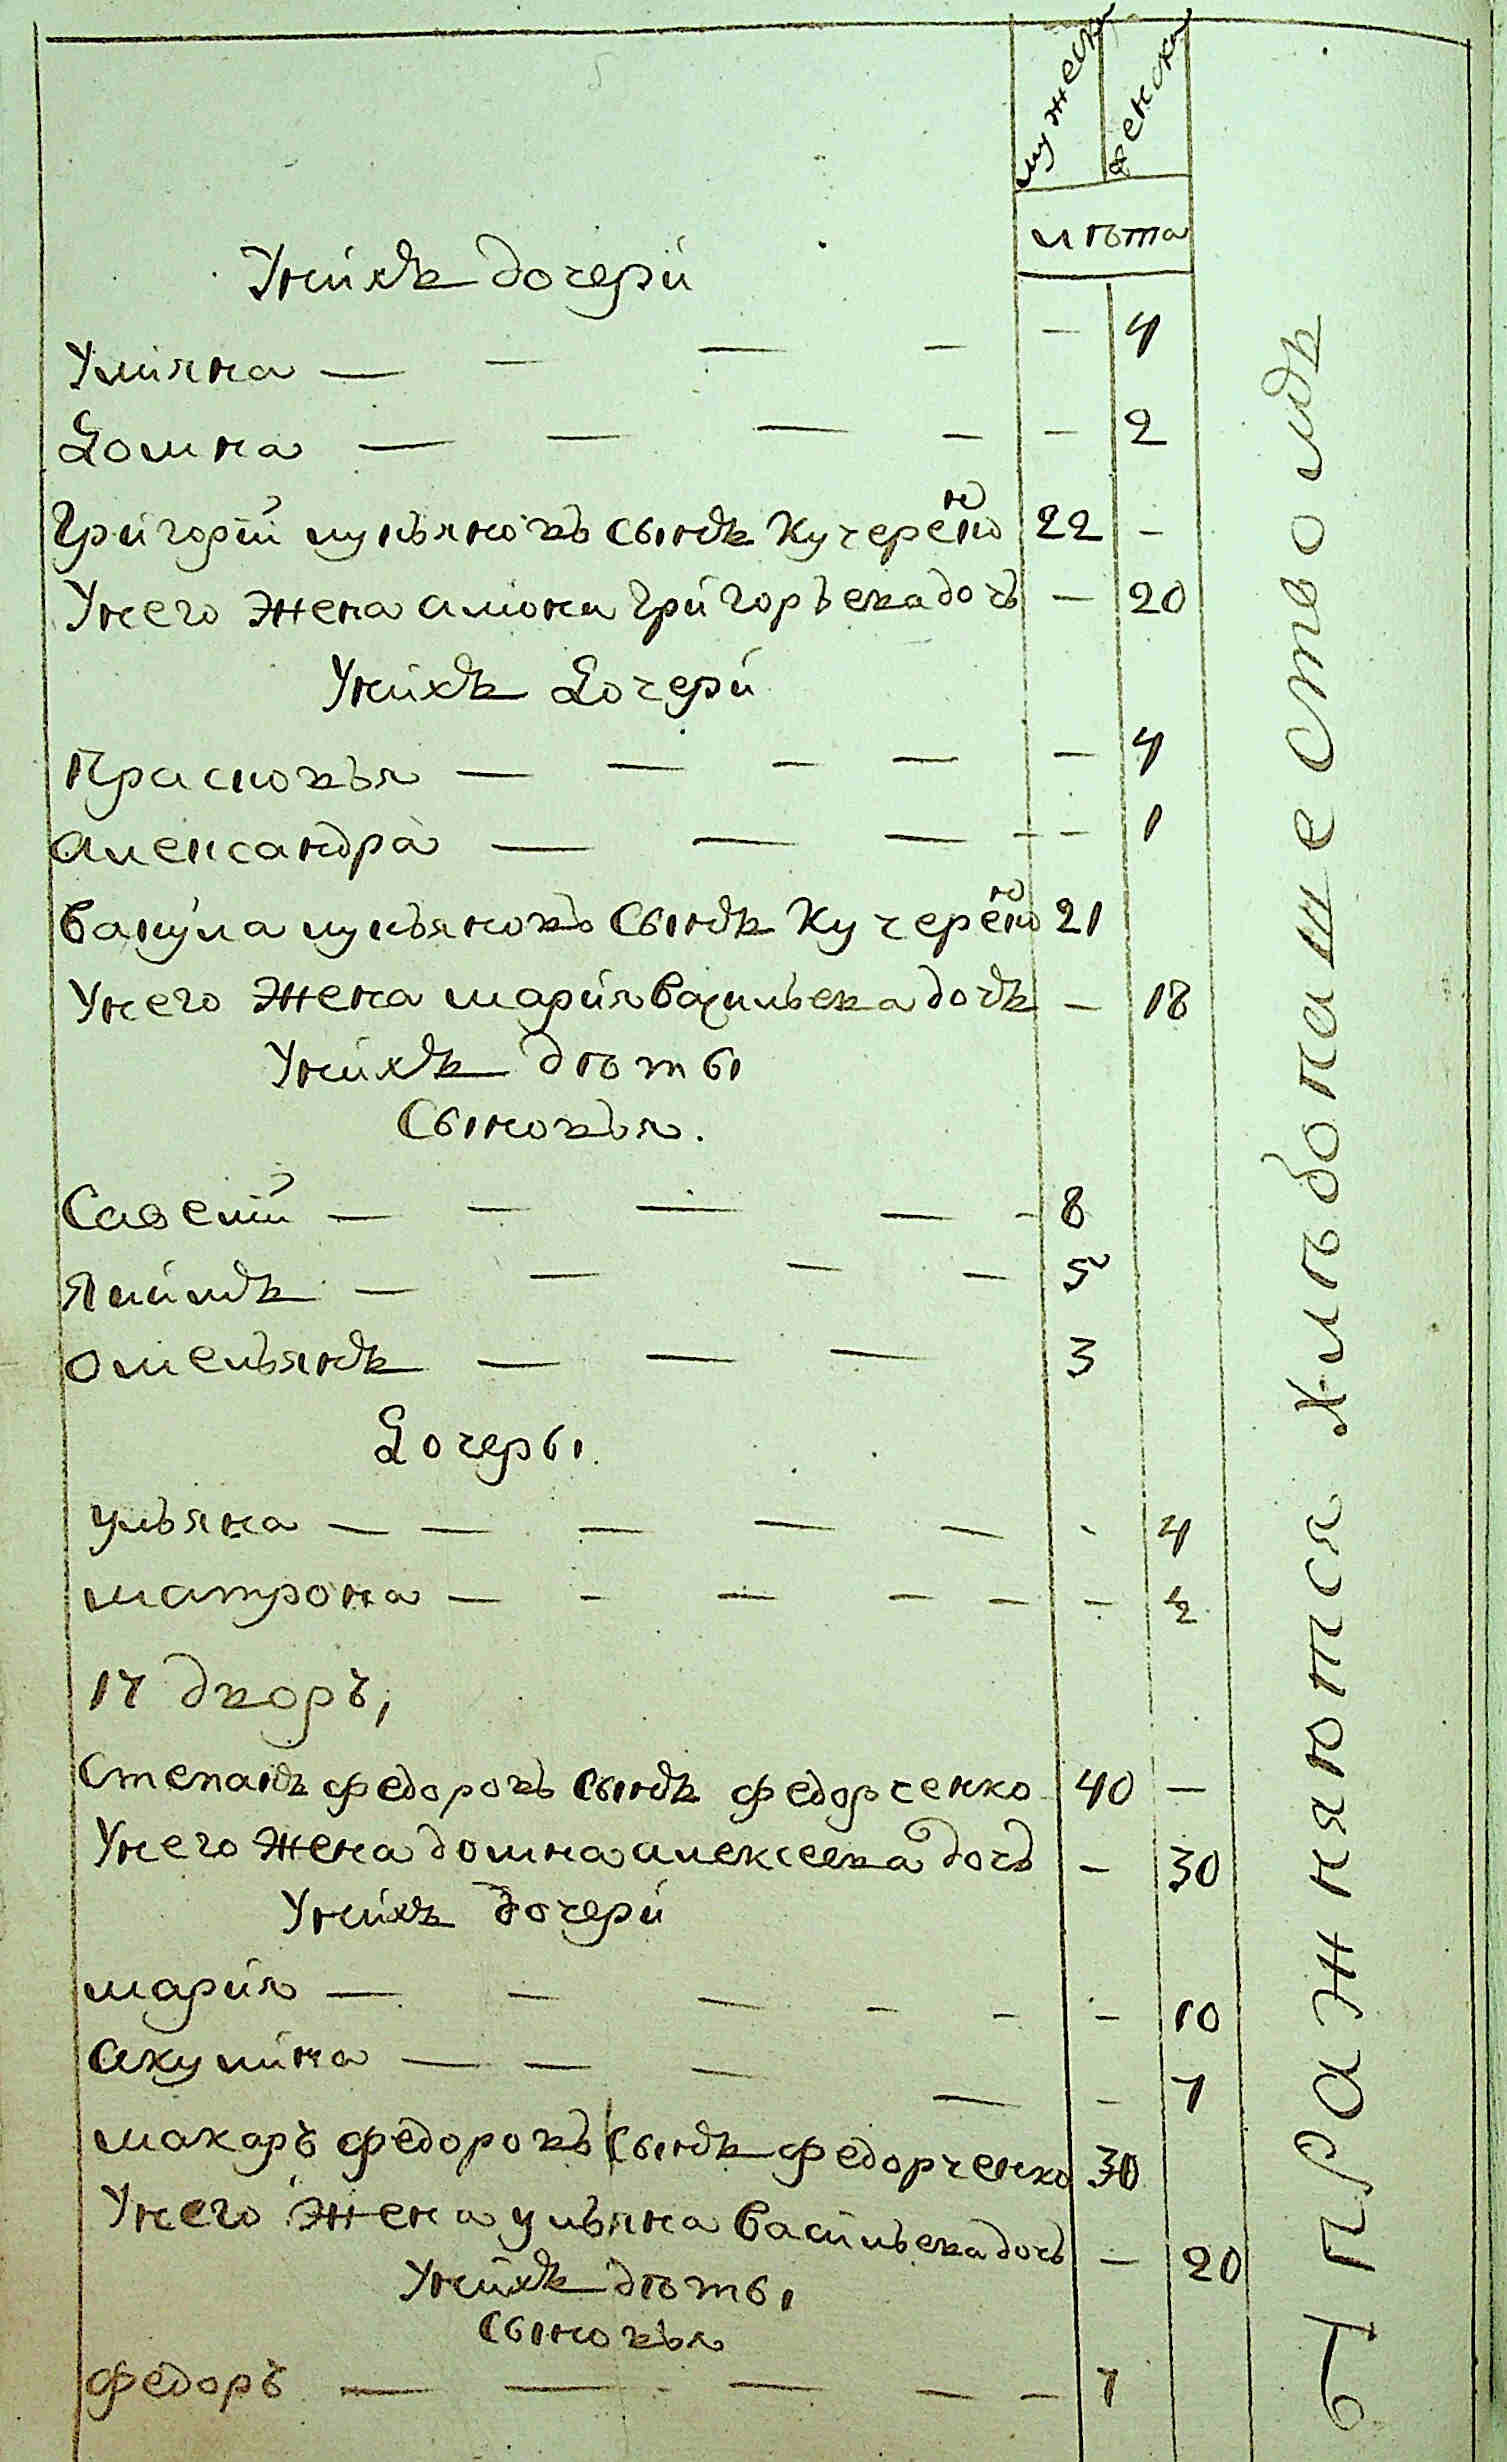 мужеск женска
лѣта
Унихъ дочери
Улияна — — — — — 4
Домна — — — — — 2
Григорій лукьяновъ сынъ Кучеренко 22 —
Унего жена алюна Григорьева дочь — 20
Унихъ Дочери
Прасковья — — — — — 4
александра — — — — — 1
Вакула лукьяновъ сынъ Кучеренко 21
Унего жена мария Васильева дочь — 18
Унихъ дѣты
Сыновья.
Савелій — — — — — 8
Якимъ — — — — 5
омельянъ — — — 3
Дочеры.
ульяна — — — — — - 4
матрона — - — — — - 2
14 дворъ,
Степанъ федоровъ сынъ федорченко 40 —
Унего жена домна алексеева дочь — 30
Унихъ дочери
мария — — — — - — 10
акулина — — — — - 7
макаръ федоровъ сынъ федорченко 30
Унего жена ульяна васильева дочь — 20
Унихъ дѣты
сыновья
федоръ — — - — — — 7
упражняются хлѣбопашествомъ